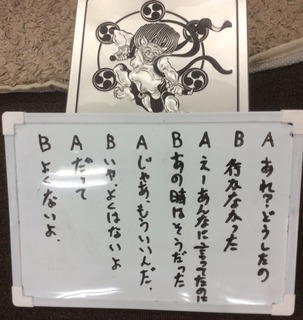 A あれ?どうしたの
B 行かなかった
A えーあんなに言ってたのに
B あの時はそうだった
A じゃあ、もういいんだ.
B いや、よくはないよ
A だって
B よくないよ.